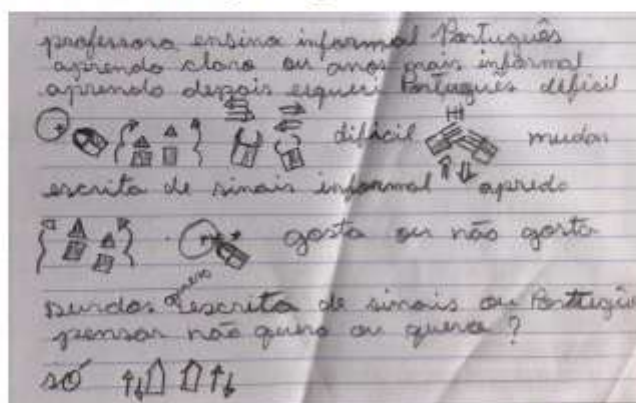 professora ensina informal Português
aprendo claro ou anos mais informal
aprendo depois esqueci Português deficil
difícil mudar
escrita de sinais informal apredo
gosta ou não gosta
surdos quero escrita de sinais ou
pensar não quero ou quero ?
só